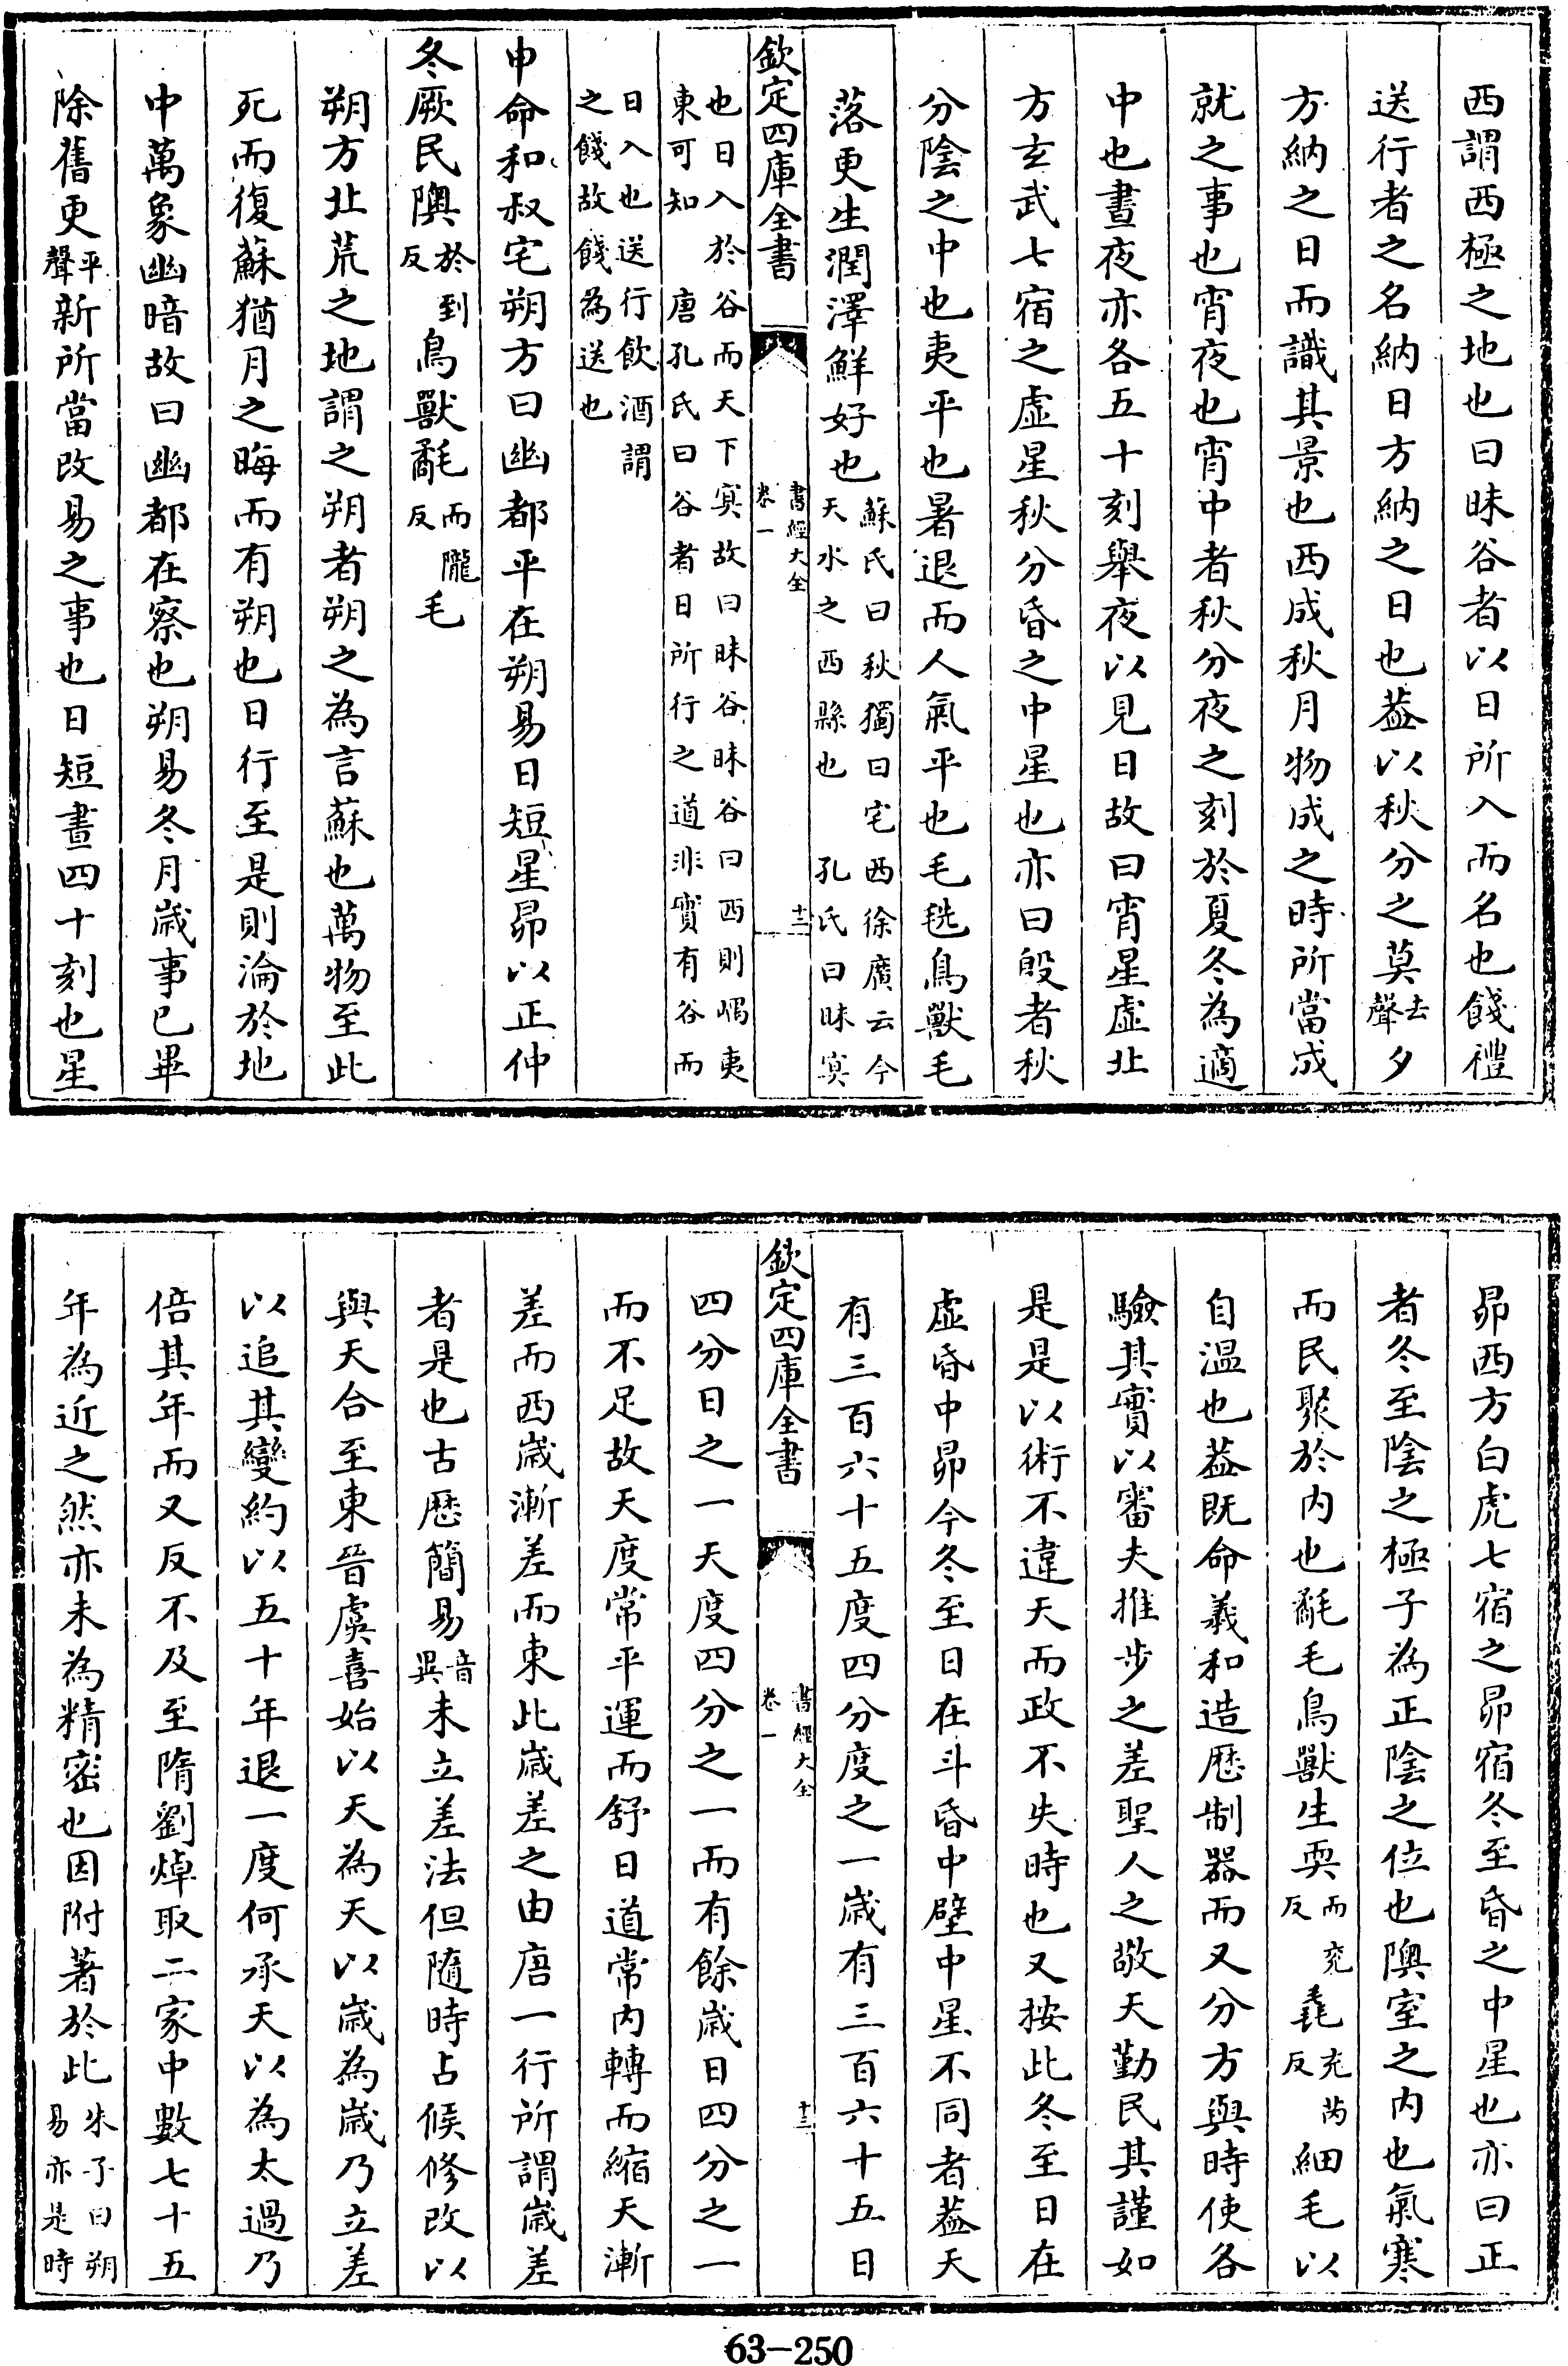 西謂西極之地也曰昧谷者以日所入而名也餞禮
送行者之名納日方納之日也葢以秋分之莫去聲夕
方納之日而識其景也西成秋月物成之時所當成
就之事也宵夜也宵中者秋分夜之刻於夏冬為適
中也晝夜亦各五十刻舉夜以見日故曰宵星虛北
方玄武七宿之虛星秋分昏之中星也亦曰殷者秋
分陰之中也夷平也暑退而人氣平也毛毨鳥獸毛
落更生潤澤鮮好也蘇氏曰秋獨曰宅西徐廣云今
天水之西縣也 孔氏曰昧㝠
欽定四庫全書
書經大全
卷一
十二
也日入於谷而天下㝠故曰昧谷昧谷曰西則嵎夷
東可知 唐孔氏曰谷者日所行之道非實有谷而
日入也送行飲酒謂
之餞故餞為送也
申命和叔宅朔方曰幽都平在朔易日短星昴以正仲
冬厥民隩於到反鳥獸氄而隴反毛
朔方北荒之地謂之朔者朔之為言蘇也萬物至此
死而復蘇猶月之晦而有朔也日行至是則淪於地
中萬象幽暗故曰幽都在察也朔易冬月歲事已畢
除舊更平聲新所當改易之事也日短晝四十刻也星
昴西方白虎七宿之昴宿冬至昏之中星也亦曰正
者冬至陰之極子為正陰之位也隩室之內也氣寒
而民聚於內也氄毛鳥獸生耎而兖反毳充芮反細毛以
自溫也葢既命羲和造厯制器而又分方與時使各
驗其實以審夫推步之差聖人之敬天勤民其謹如
是是以術不違天而政不失時也又按此冬至日在
虛昏中昴今冬至日在斗昏中壁中星不同者葢天
有三百六十五度四分度之一歲有三百六十五日
欽定四庫全書
書經大全
卷一
十三
四分日之一天度四分之一而有餘歲日四分之一
而不足故天度常平運而舒日道常內轉而縮天漸
差而西歲漸差而東此歲差之由唐一行所謂歲差
者是也古厯簡易音異未立差法但隨時占候修改以
與天合至東晉虞喜始以天為天以歲為歲乃立差
以追其變約以五十年退一度何承天以為太過乃
倍其年而又反不及至隋劉焯取二家中數七十五
年為近之然亦未為精密也因附著於此朱子曰朔
易亦是時
63-250